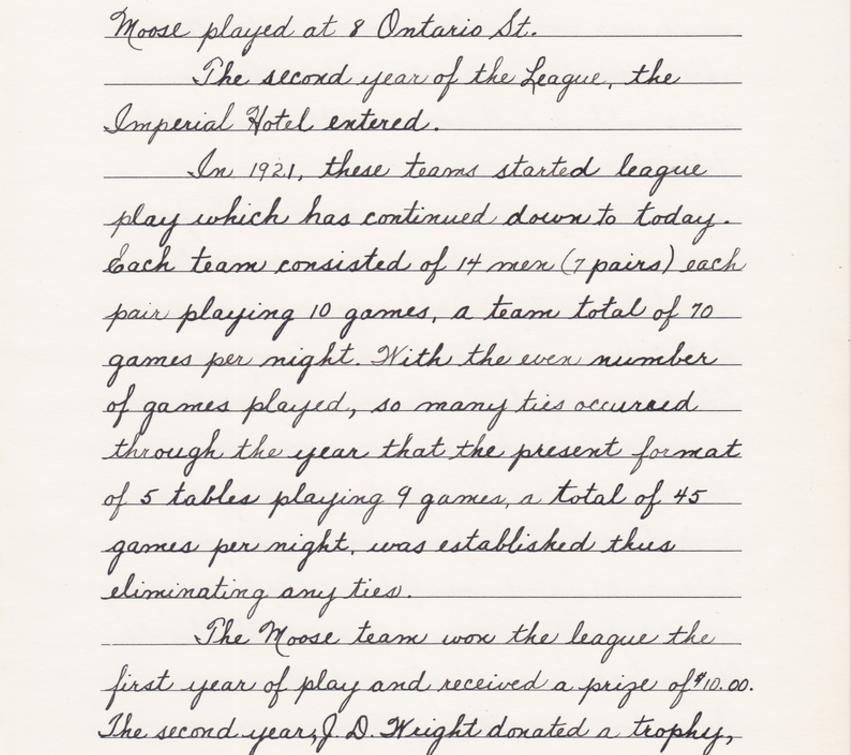 Moose played at 8 Ontario St.
The second year of the League, the
Imperial Hotel entered.
In 1921, these teams started league
play which has continued down to today.
Each team consisted of 14 men (7 pairs) each
pair playing 10 games, a team total of 70
games per night. With the even number
of games played, so many ties occurred
through the year that the present format
of 5 tables playing 9 games, a total of 45
games per night, was established thus
eliminating any ties.
The Moose team won the league the
first year of play and received a prize of $10.00.
The second year, J. D. Wright donated a trophy,